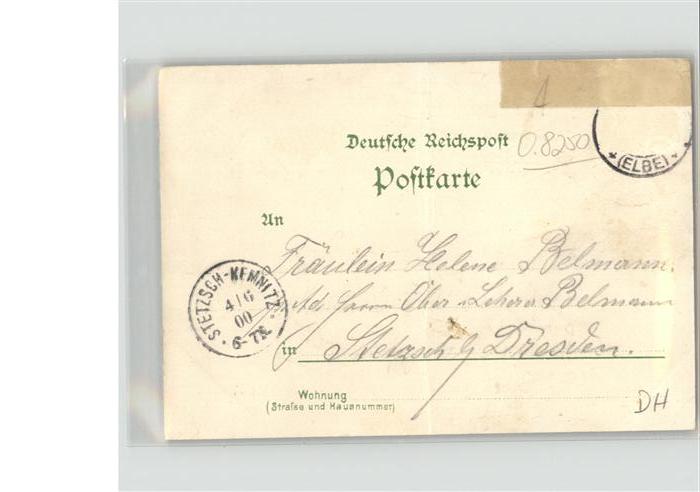 Deutsche Reichspost
0.8250
Postkarte
(ELBE)
An
Fräulein Helene Belmann.
Ad. Herrn Ober-Lehrer Belmann
in Stetzsch b/ Dresden.
STETZSCH-KEMNITZ
4/6
00
6-7N.
Wohnung
(Straße und Hausnummer)
DH